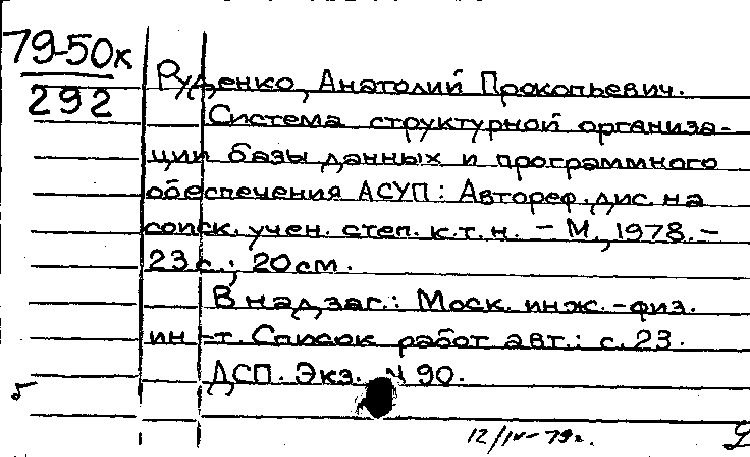 79-50к
292
Руденко, Анатолий Прокопьевич.
Система структурной организа-
ции базы данных и программного
обеспечения АСУП: Автореф. дис. на
соиск. учен. степ. к.т.н. – М., 1978. –
23 с.; 20 см.
В надзаг.: Моск. инж.-физ.
ин-т. Список работ авт.: с. 23.
ДСП. Экз. N 90.
12/IV-79г.